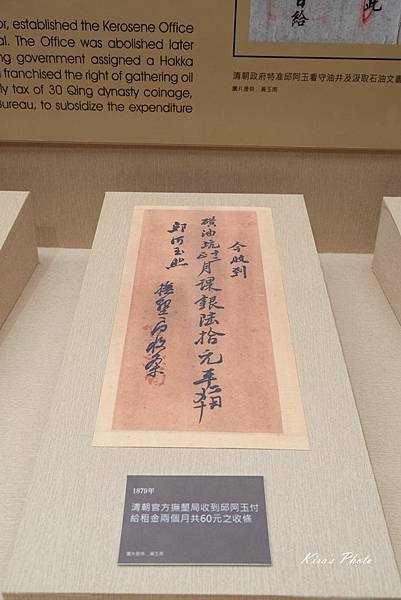 or, established the Kerosene Office
al. The Office was abolished later
ng government assigned a Hakka
franchised the right of gathering oil
ly tax of 30 Qing dynasty coinage,
Bureau, to subsidize the expenditure
此
日給
清朝政府特准邱阿玉看守油井及汲取石油文書
圖片提供 黃玉雨
今收到
磺油坑 月課銀陸拾元
邱阿玉
撫墾局收條
1879年
清朝官方撫墾局收到邱阿玉付
給租金兩個月共60元之收條
圖片提供 黃玉雨
Kira's Photo